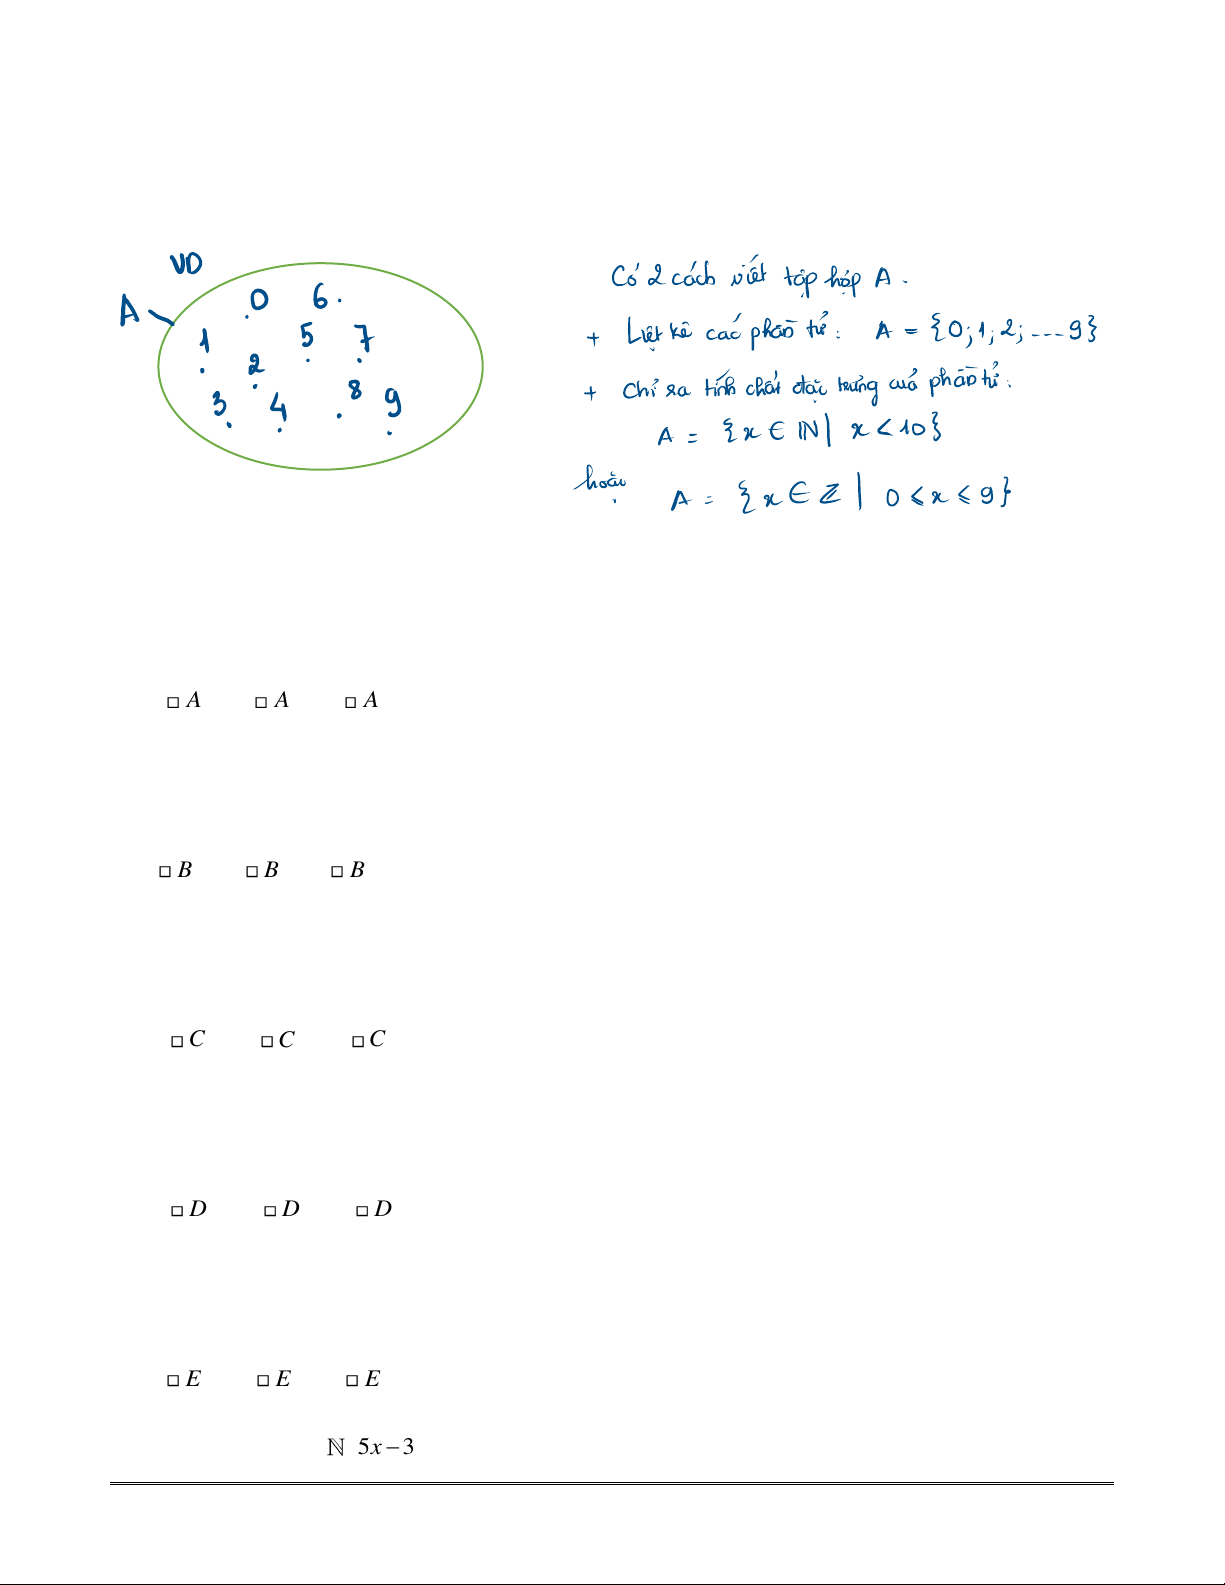 VD
A
0 6
1 5 7
2
3 4 8 9
Có 2 cách viết tập hợp A.
+ Liệt kê các phần tử: A = {0; 1; 2; ... 9}
+ Chỉ ra tính chất đặc trưng của phần tử:
A = {x ∈ ℕ | x < 10}
hoặc A = {x ∈ ℤ | 0 ⩽ x ⩽ 9}
□ A □ A □ A
□ B □ B □ B
□ C □ C □ C
□ D □ D □ D
□ E □ E □ E
ℕ 5x − 3